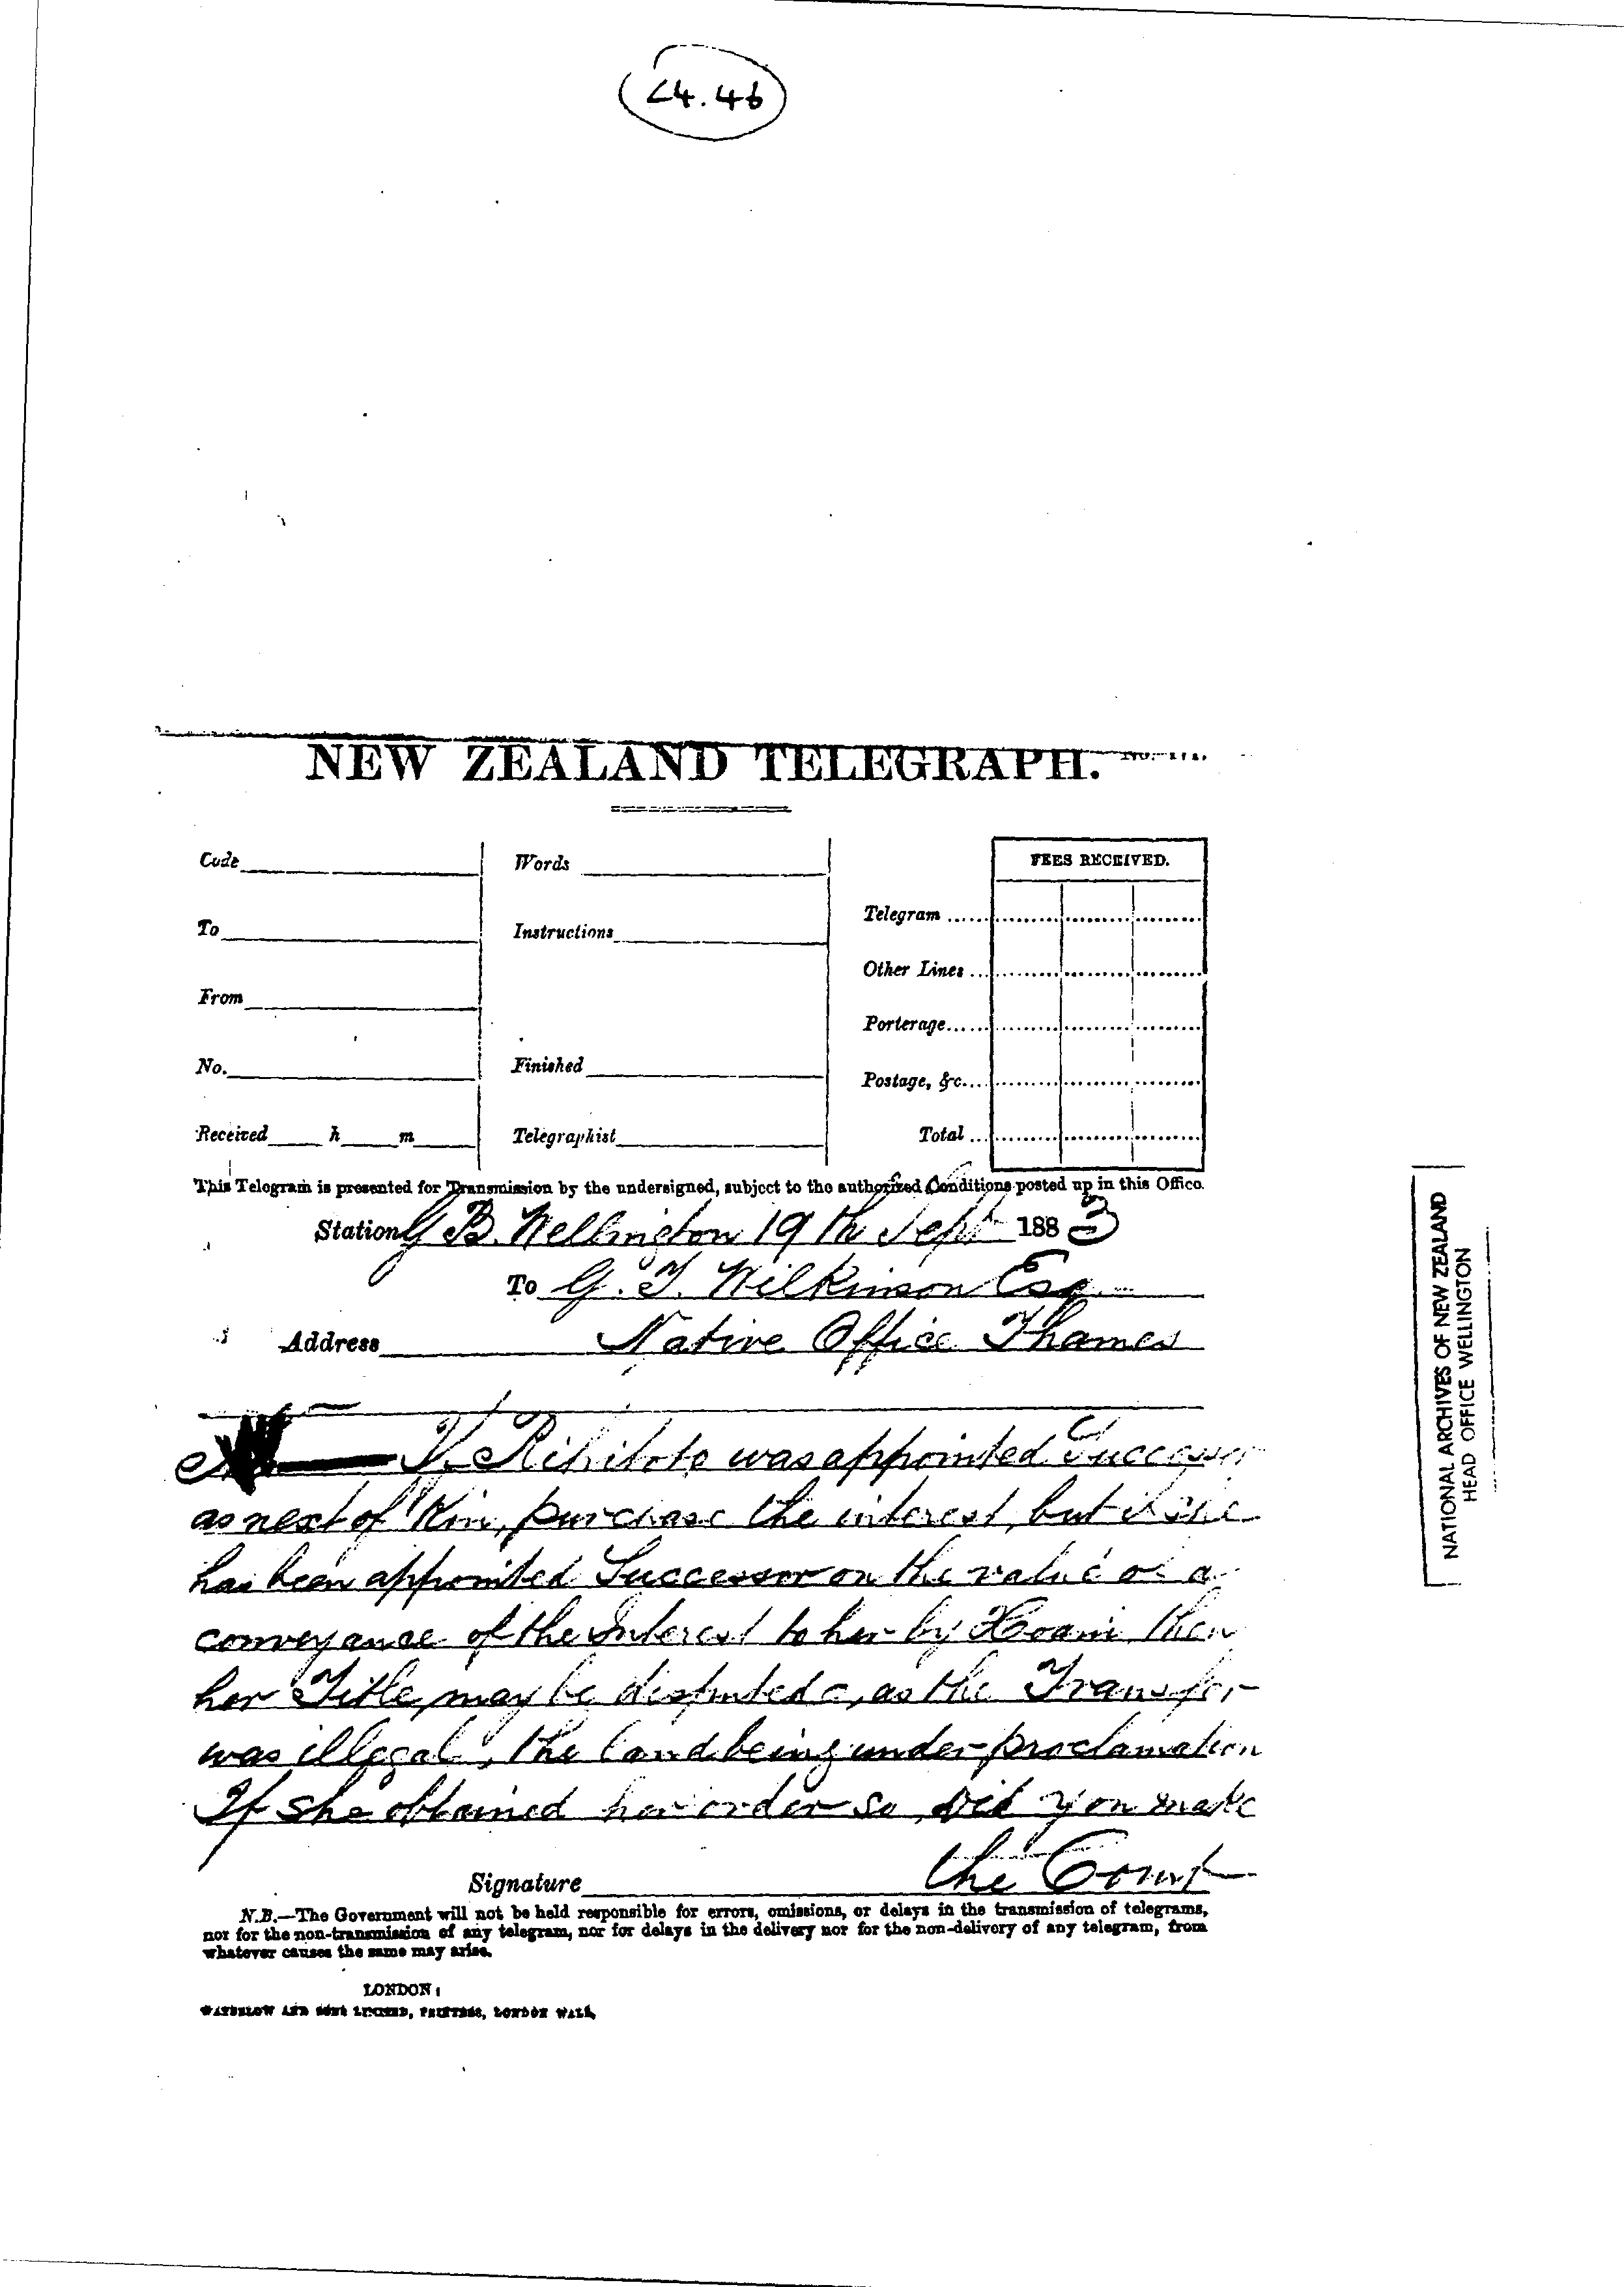 24.46
NEW ZEALAND TELEGRAPH.
Code
Words
FEES RECEIVED.
To
Instructions
Telegram
Other Lines
From
Porterage
No.
Finished
Postage, &c.
Received h m
Telegraphist
Total
This Telegram is presented for Transmission by the undersigned, subject to the authorized Conditions posted up in this Office.
Station G B. Wellington 19th Sept 1883
To G. T. Wilkinson Esq
Address Native Office Thames
Rihitoto was appointed Successor
as next of Kin, purchase the interest, but if she
has been appointed Successor on the value of a
conveyance of the Interest to her by Hoani then
her Title may be disputed, as the Transfer
was illegal, the land being under proclamation
If she obtained her order so did you make
the Court
Signature
N.B.—The Government will not be held responsible for errors, omissions, or delays in the transmission of telegrams,
nor for the non-transmission of any telegram, nor for delays in the delivery nor for the non-delivery of any telegram, from
whatever causes the same may arise.
LONDON:
WATERLOW AND SONS LIMITED, PRINTERS, LONDON WALL
NATIONAL ARCHIVES OF NEW ZEALAND
HEAD OFFICE WELLINGTON